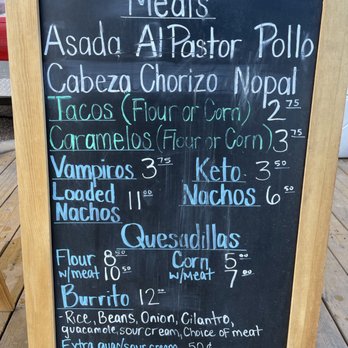 Meats
Asada Al Pastor Pollo
Cabeza Chorizo Nopal
Tacos (Flour or Corn) 2.75
Caramelos (Flour or Corn) 3.75
Vampiros 3.75 Keto 3.50
Loaded Nachos 11.00 Nachos 6.50
Quesadillas
Flour 8.50 Corn 5.00
w/meat 10.50 w/meat 7.00
Burrito 12.00
-Rice, Beans, Onion, Cilantro,
guacamole, sour cream, Choice of meat
Extra guac/sour cream 50¢